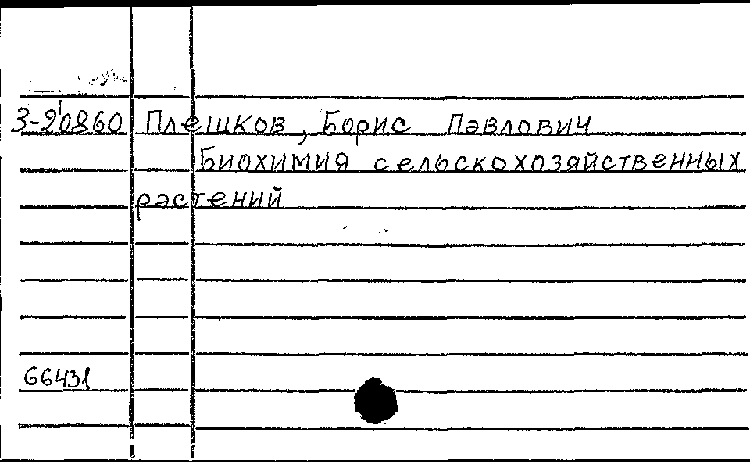 З-20860 Плешков, Борис Павлович
Биохимия сельскохозяйственных
растений
66431